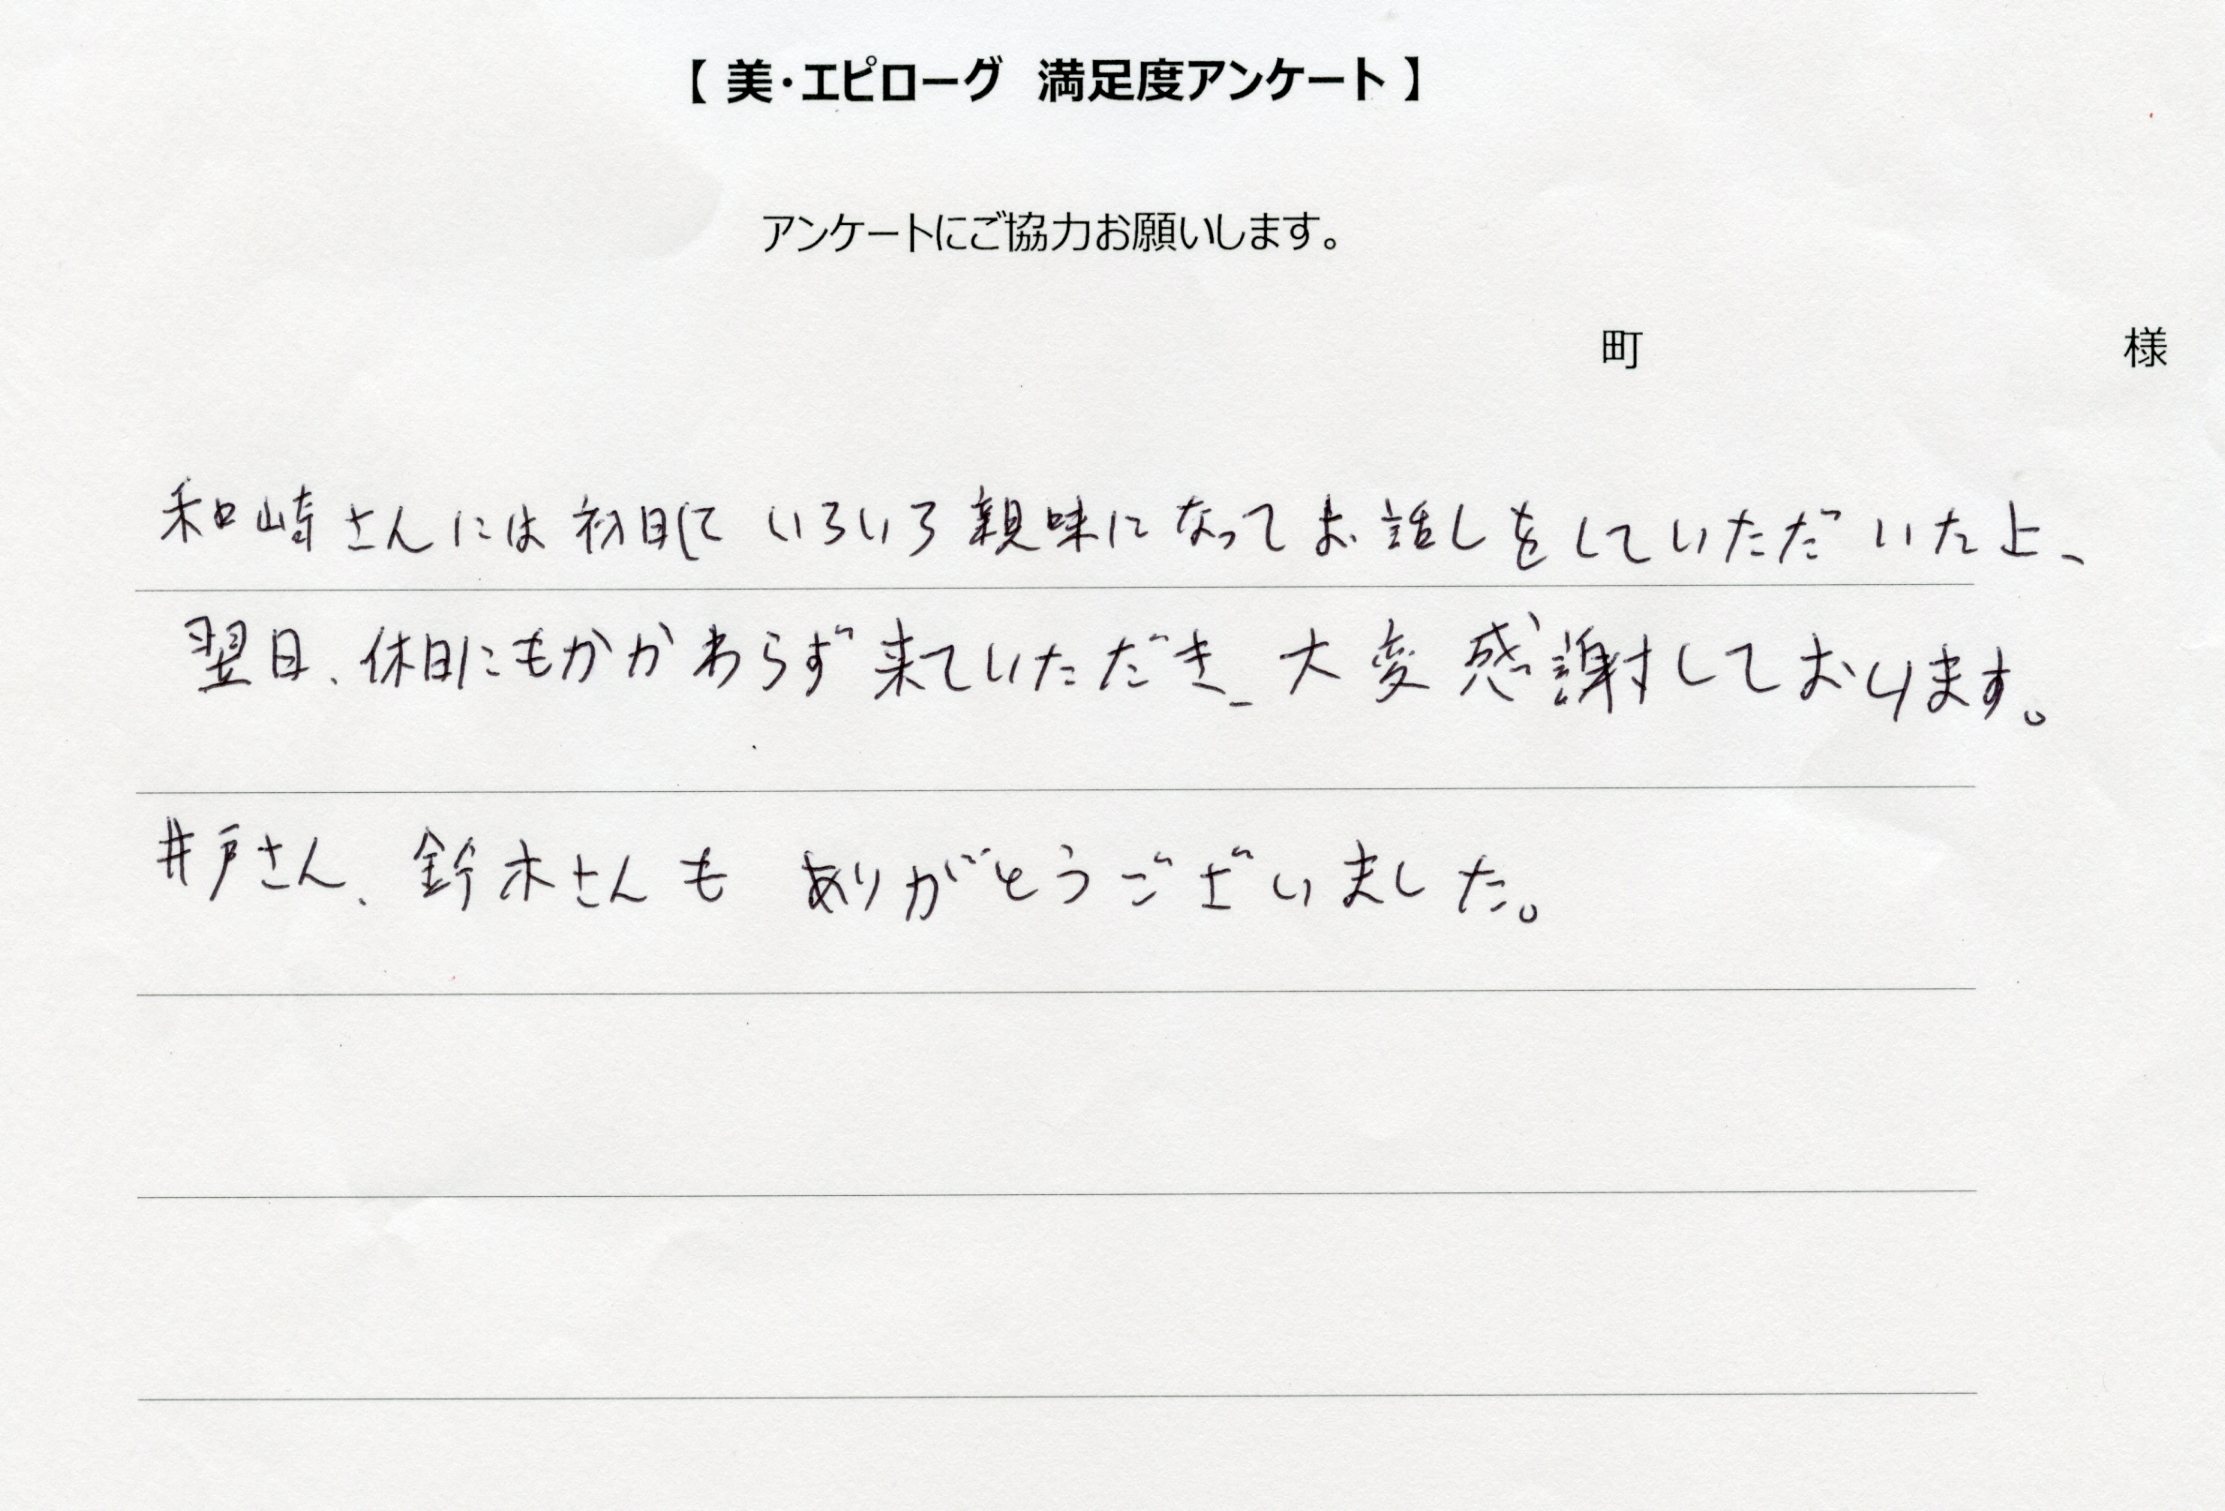 【 美・エピローグ　満足度アンケート 】
アンケートにご協力お願いします。
町　様
和崎さんには初日に いろいろ親味になってお話しをしていただいた上、
翌日、休日にもかかわらず来ていただき、大変感謝しております。
井戸さん、鈴木さんも ありがとうございました。